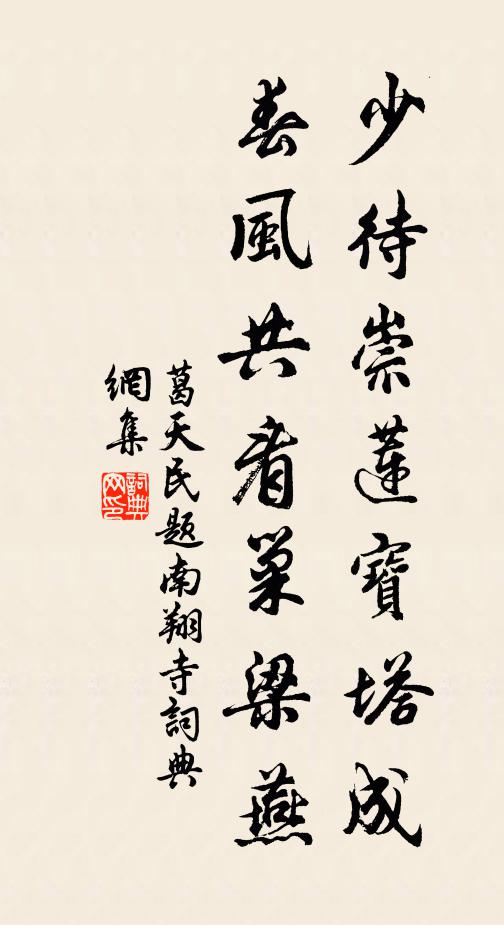 少待崇蓮寶塔成
春風共看巢梁燕
葛天民題南翔寺詞典
網集
詞典網印